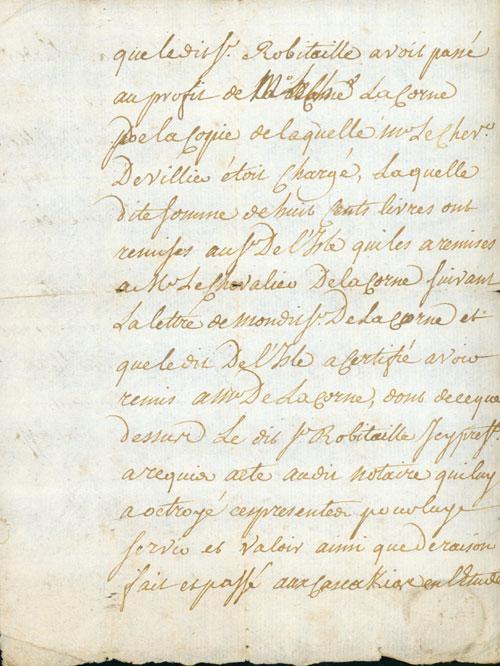 que le dit Sr. Robitaille avoit passé
au profit de La Corne
de la Copie de laquelle mr Le Chevr.
De villie étoit Chargé, Laquelle
dite somme de huit Cents livres ont
remises au Sr. De L'Isle qui les a remises
a Mr. Le Chevalier De la Corne suivant
La lettre de mondit Sr. De La Corne et
que le dit De L'Isle a Certifié avoir
remis a Mr De La Corne, dont de ce que
dessus Le dit Sr Robitaille icy prest.
a requis acte audit notaire qui luy
a octroyé ces presentes pour luy
servir et valoir ainsi que de raison
fait et passé aux Cascakias en l'Etude